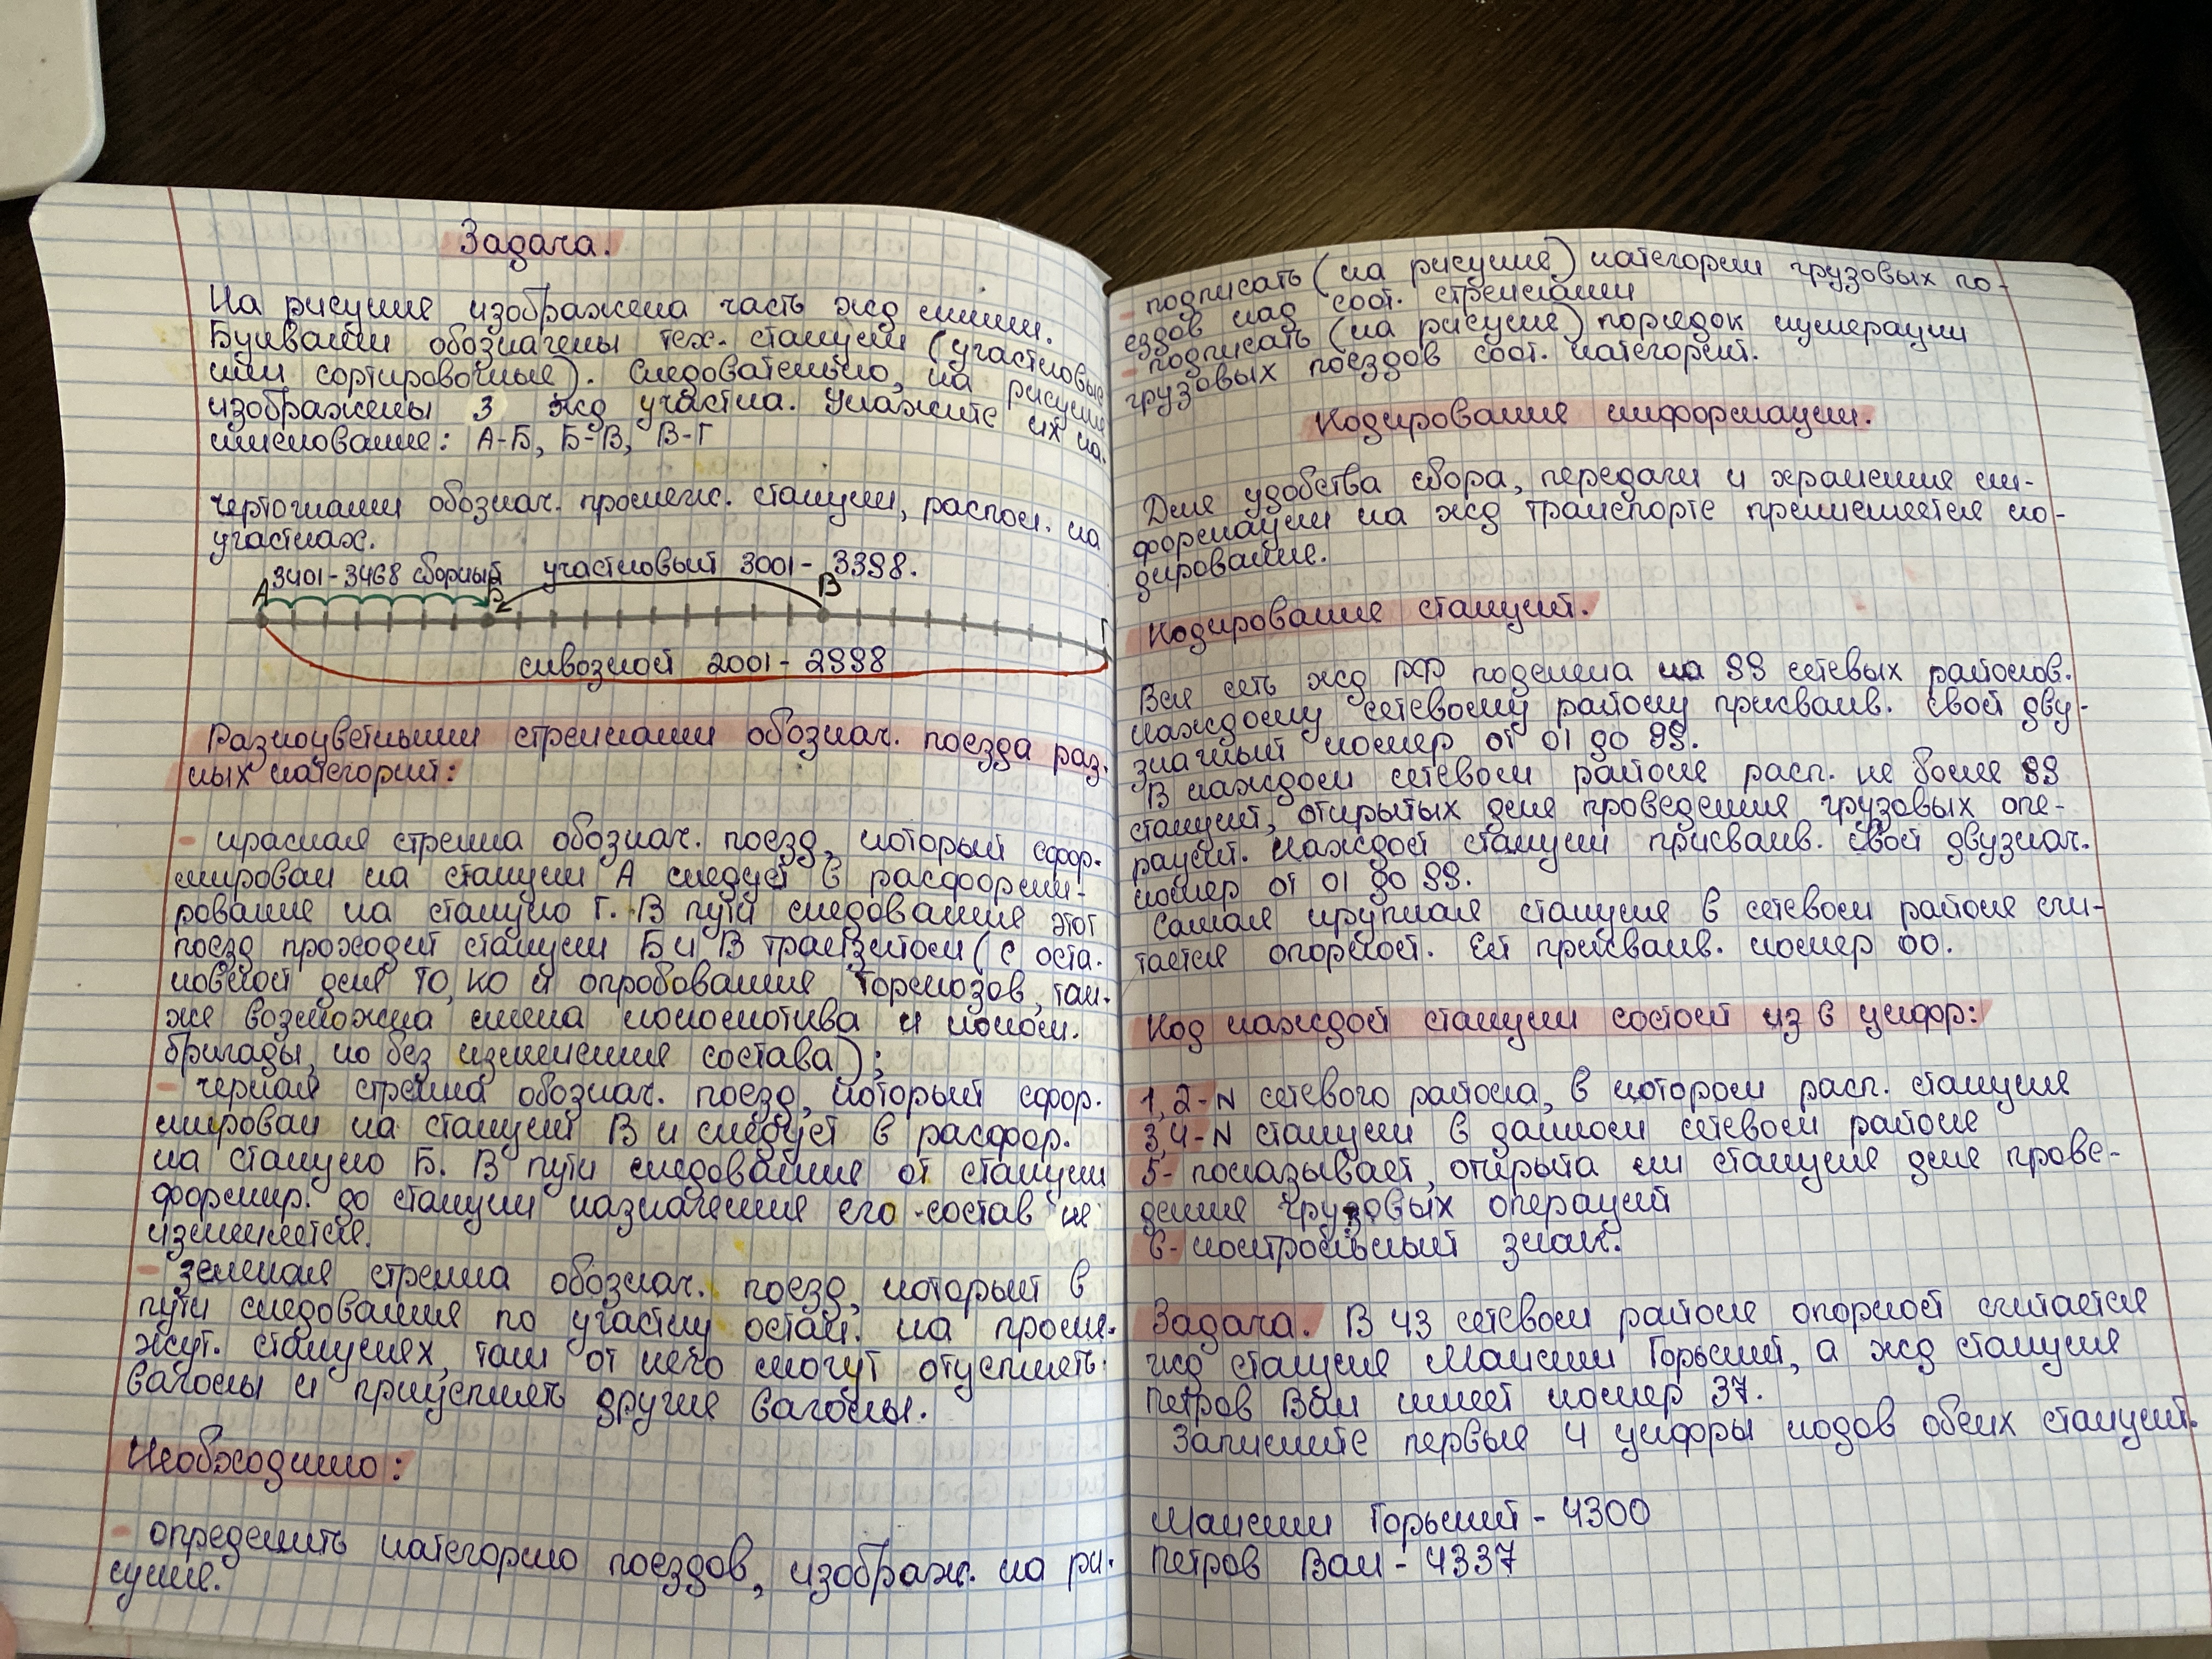 Задача.
На рисунке изображена часть жд линии.
Буквами обозначены тех. станции (участковые
или сортировочные). Следовательно, на рисунке
изображены 3 жд участка. Укажите их на-
именование: А-Б, Б-В, В-Г
Чёрточками обознач. промеж. станции, распол. на
участках.
3401-3468 сборный участковый 3001-3398.
А Б В Г
сквозной 2001-2998
Разноцветными стрелками обознач. поезда раз.
ных категорий:
- красная стрелка обознач. поезд, который сфор.
мирован на станции А следует в расформи-
рование на станцию Г. В пути следования этот
поезд проходит станции Б и В транзитом (с оста.
новкой для ТО, КО и опробования тормозов, так.
же возможна смена локомотива и локом.
бригады, но без изменения состава);
- черная стрелка обознач. поезд, который сфор.
мирован на станции В и следует в расфор.
на станцию Б. В пути следования от станции
формир. до станции назначения его состав не
изменяется.
- зеленая стрелка обознач. поезд, который в
пути следования по участку остан. на проме.
жут. станциях, там от него могут отцеплять
вагоны и прицеплять другие вагоны.
Необходимо:
- определить категорию поездов, изображ. на ри.
сунке.
- подписать (на рисунке) категории грузовых по-
ездов над соот. стрелками
- подписать (на рисунке) порядок нумерации
грузовых поездов соот. категорий.
Кодирование информации.
Для удобства сбора, передачи и хранения ин-
формации на жд транспорте применяется ко-
дирование.
Кодирование станций.
Вся сеть жд РФ поделена на 99 сетевых районов.
Каждому сетевому району присваив. свой дву-
значный номер от 01 до 99.
В каждом сетевом районе расп. не более 99
станций, открытых для проведения грузовых опе-
раций. Каждой станции присваив. свой двузнач.
номер от 01 до 99.
Самая крупная станция в сетевом районе счи-
тается опорной. Ей присваив. номер 00.
Код каждой станции состоит из 6 цифр:
1,2-N сетевого района, в котором расп. станция
3,4-N станции в данном сетевом районе
5- показывает, открыта ли станция для прове-
дения грузовых операций
6- контрольный знак.
Задача. В 43 сетевом районе опорной считается
жд станция Максим Горький, а жд станция
Петров Вал имеет номер 37.
Запишите первые 4 цифры кодов обеих станций.
Максим Горький - 4300
Петров Вал - 4337